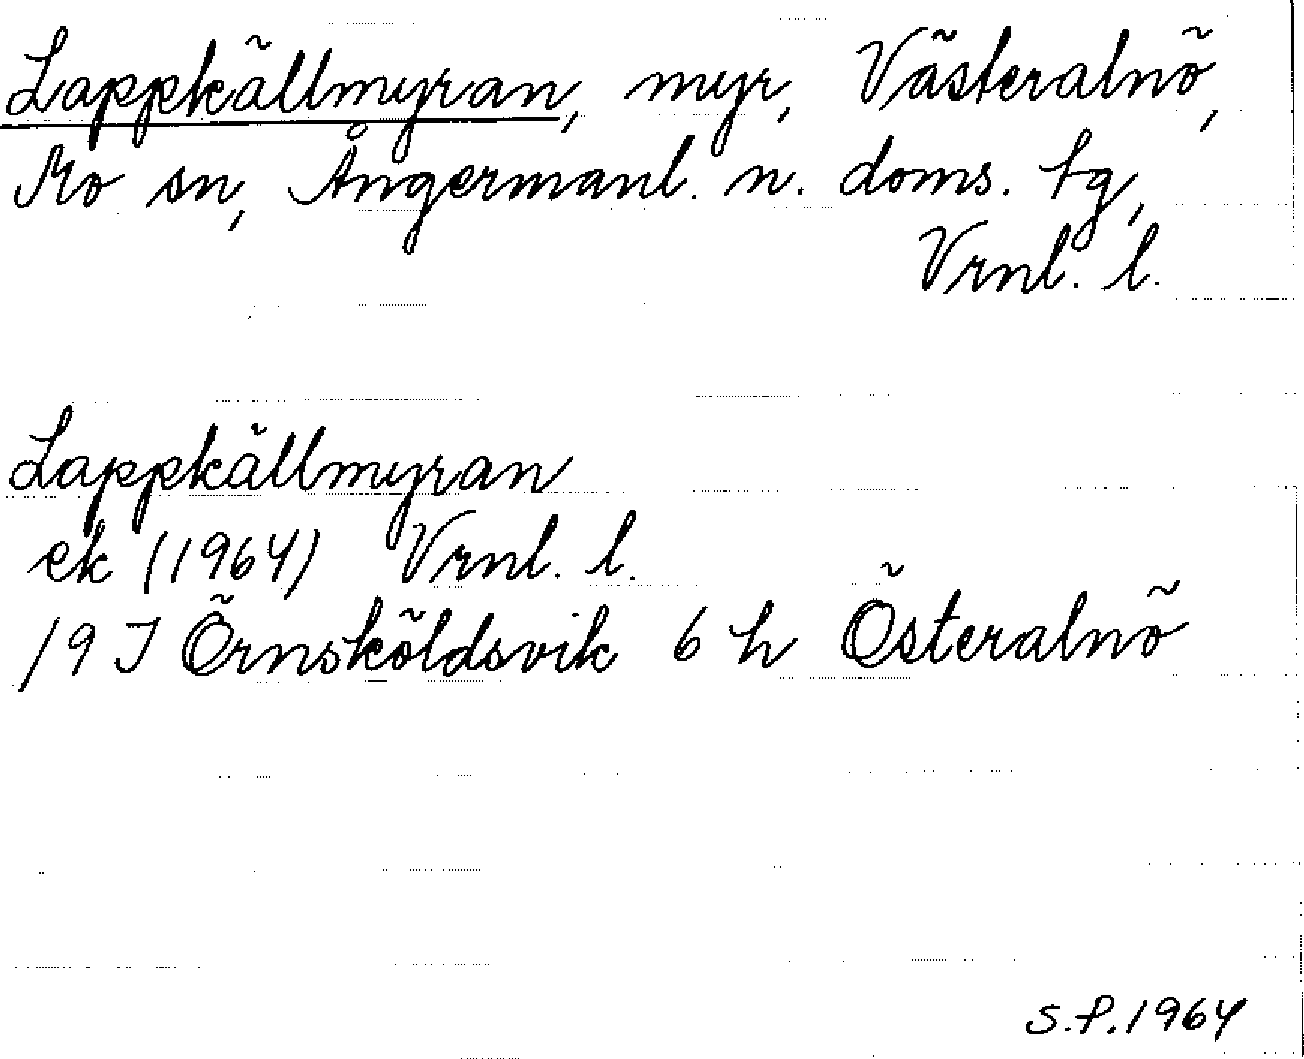 Lappkällmyran, myr, Västeralnö,
Mo sn, Ångermanl. n. doms. tg,
Vrnl. l.
Lappkällmyran
ek (1964) Vrnl. l.
19 J Örnsköldsvik 6 h Österalnö
S.P. 1964